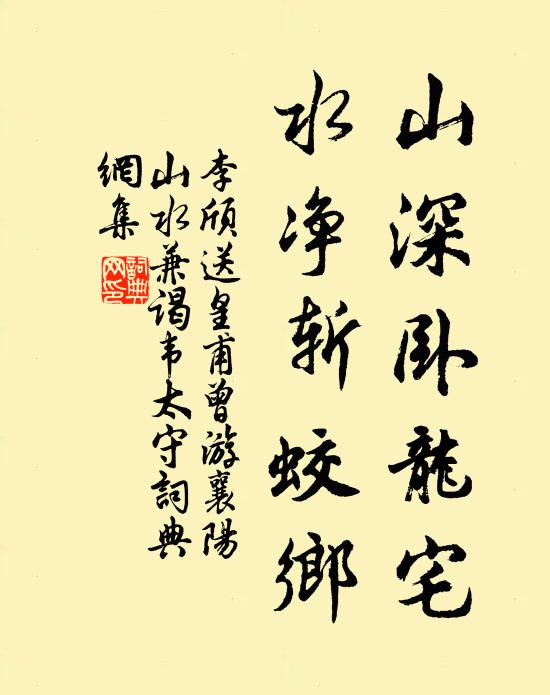 山深卧龍宅
水净斬蛟鄉
李頎送皇甫曾游襄陽
山水兼谒韦太守詞典
網集
詞典网印